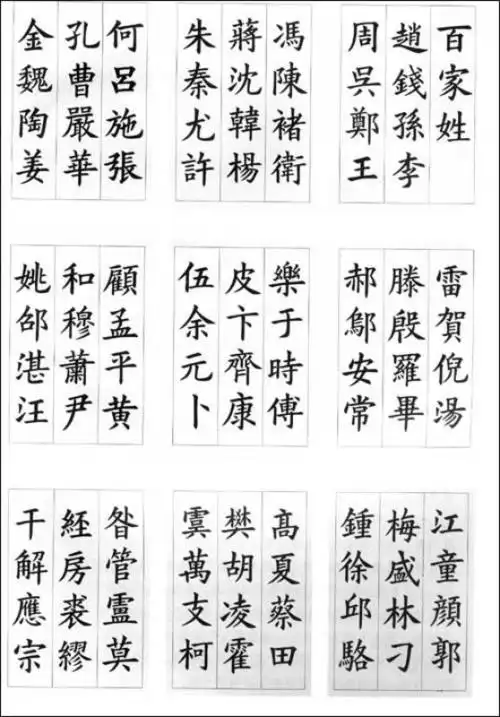 百家姓
趙錢孫李
周吳鄭王
馮陳褚衛
蔣沈韓楊
朱秦尤許
何呂施張
孔曹嚴華
金魏陶姜
雷賀倪湯
滕殷羅畢
郝鄔安常
樂于時傅
皮卞齊康
伍余元卜
顧孟平黄
和穆蕭尹
姚邵湛汪
江童顔郭
梅盛林刁
鍾徐邱駱
高夏蔡田
樊胡凌霍
虞萬支柯
昝管盧莫
經房裘繆
干解應宗